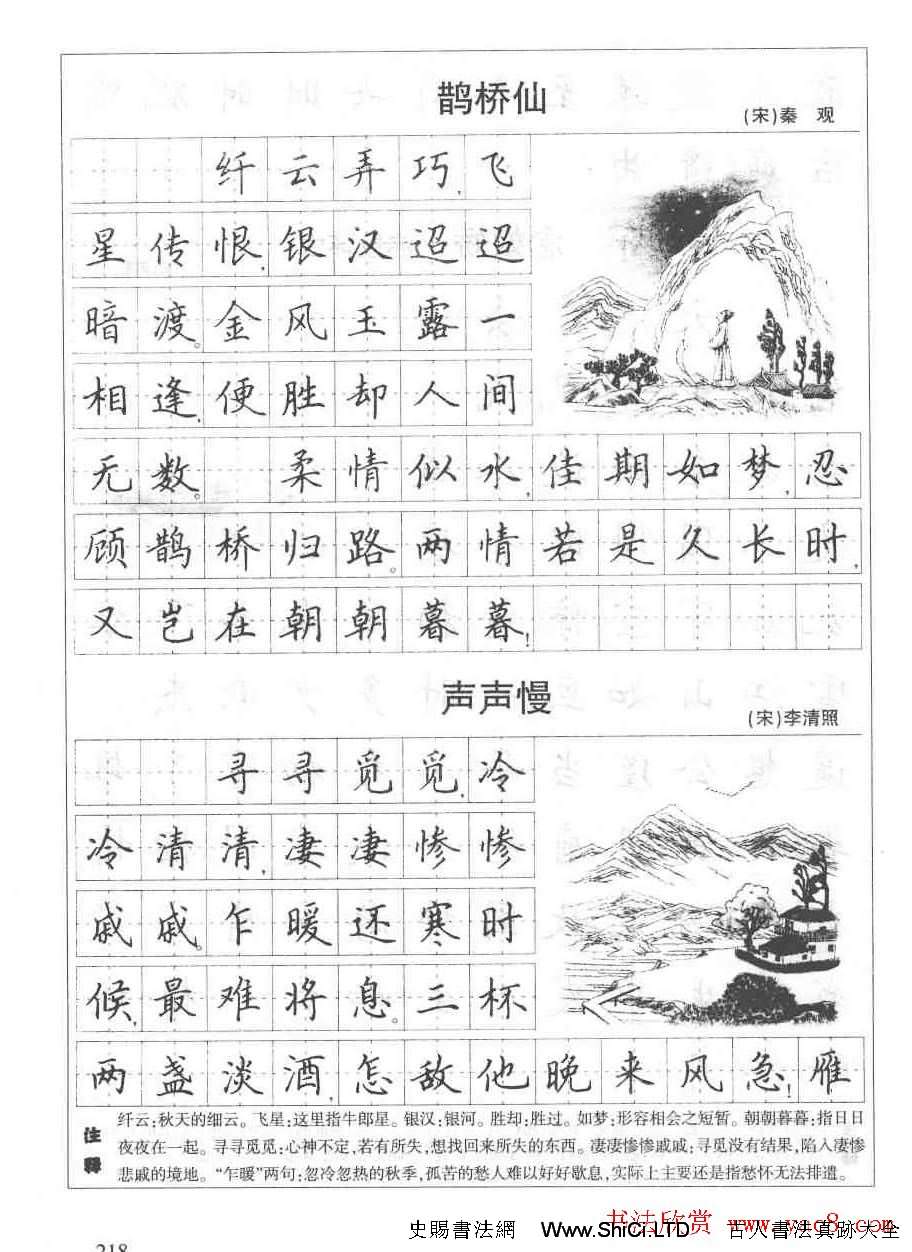 鹊桥仙
(宋)秦 观
纤云弄巧,飞
星传恨,银汉迢迢
暗渡。金风玉露一
相逢,便胜却人间
无数。 柔情似水,佳期如梦,忍
顾鹊桥归路。两情若是久长时,
又岂在朝朝暮暮!
声声慢
(宋)李清照
寻寻觅觅,冷
冷清清,凄凄惨惨
戚戚。乍暖还寒时
候,最难将息。三杯
两盏淡酒,怎敌他晚来风急!雁
注释
纤云:秋天的细云。飞星:这里指牛郎星。银汉:银河。胜却:胜过。如梦:形容相会之短暂。朝朝暮暮:指日日
夜夜在一起。寻寻觅觅:心神不定,若有所失,想找回来所失的东西。凄凄惨惨戚戚:寻觅没有结果,陷入凄惨
悲戚的境地。“乍暖”两句:忽冷忽热的秋季,孤苦的愁人难以好好歇息,实际上主要还是指愁怀无法排遣。
书法欣赏
史賜書法網 Www.ShiCi.LTD 古人書法真跡大全
218